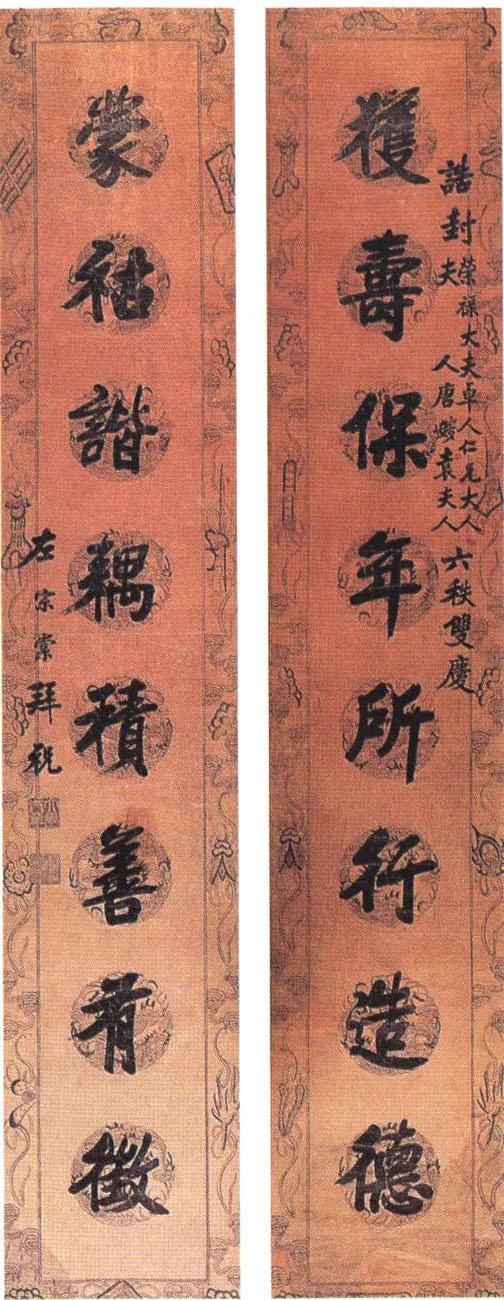 獲壽保年所行造德
誥封榮祿大夫卓人仁兄大人
夫人唐嫂袁夫人
六秩雙慶
蒙祜諧耦積善有徵
左宗棠拜祝